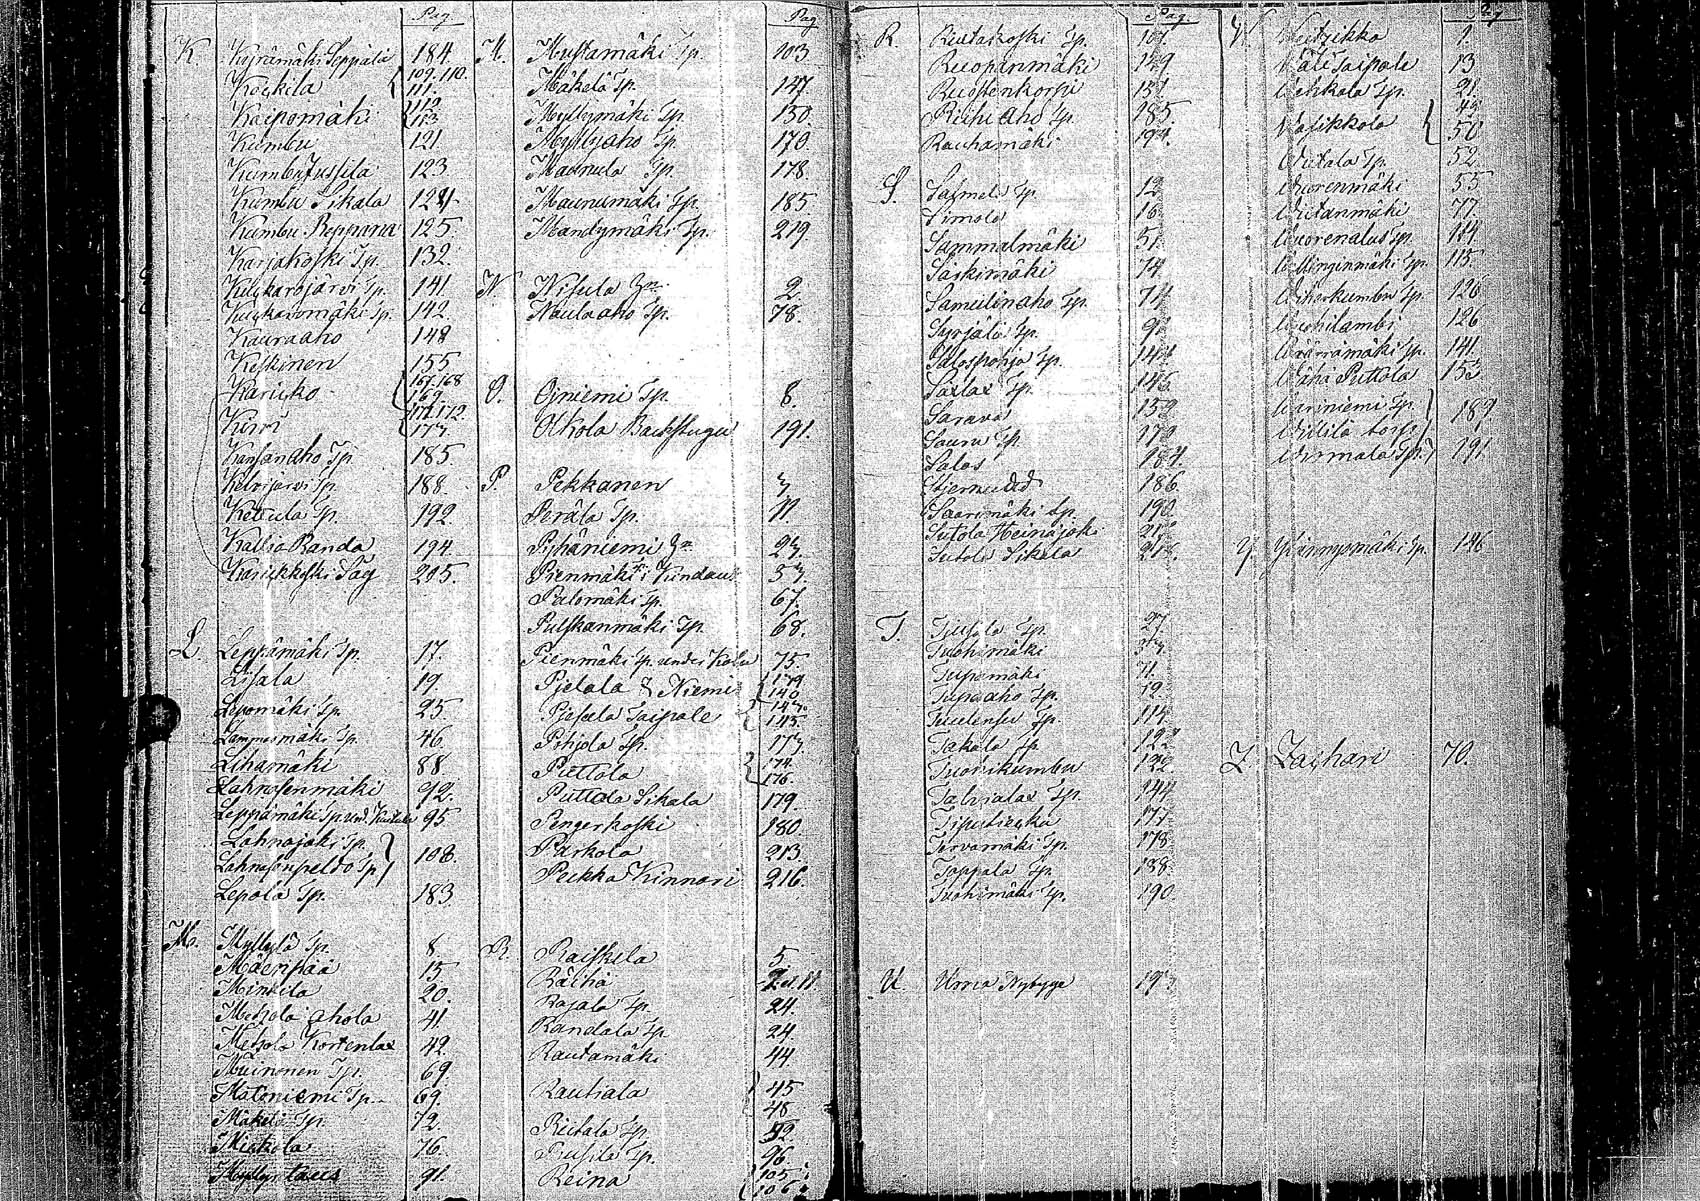 Pag
K. Kujrämäki Seppälä 184.
Köykilä 109. 110. 111.
Kaipomäki 112 113
Kumbu 121.
Kumbu Jussila 123.
Kumbu Sikala 124
Kumbu Reppana 125.
Karjakoski Tp. 132.
Kuukarojärvi Tp. 141.
Kuukaromäki Tp. 142.
Kauraaho 148
Keskinen 155
Karikko 167. 168 169.
Kiiri 171. 172. 173.
Kansanaho Tp. 185
Keurijärvi Tp. 188.
Kettula Tp. 192.
Kallio Randa 194.
Karikkoski Såg 205.
L. Leppämäki Tp. 17.
Lisala 19.
Lepomäki Tp. 25.
Lammasmäki Tp. 46.
Lihamäki 88.
Lahnasenmäki 92.
Leppämäki Tp. und. 95.
Lahnajoki Tp.
Lahnasenpeldo Tp. 108.
Lepola Tp. 183.
M. Myllylä Tp. 8.
Mäenpää 15
Minkilä 20.
Metsola Ahola 41.
Metsola Kortenlax 42.
Muinonen Tp. 69.
Matoniemi Tp. 69.
Mäkelä Tp. 72.
Miekkola 76.
91.
Pag
M. Mustamäki Tp. 103
Mäkelä Tp. 147.
Myllymäki Tp. 150.
Myllyaho Tp. 170.
Maunula Tp. 178.
Maunumäki Tp. 185.
Mandymäki Tp. 219.
N. Nisula 2.
Naulaaho Tp. 78.
O. Ojniemi Tp. 8.
Olkola Backstugu 191.
P. Pekkanen 7
Perälä Tp. 11.
Pyhäniemi 23.
Pienmäki i Kindaus 57.
Palomäki Tp. 67.
Pulskanmäki Tp. 68.
Pienmäki Tp. under Kolu 75.
Pjelala & Niemi 139 140
Pjesala Taipale 143. 145.
Pohjola Tp. 173.
Puttola 174. 176.
Puttola Sikala 179.
Pengerkoski 180.
Purkola 213.
Pekka Kinnari 216.
R. Raiskila 5.
Räihä 7. et. 11.
Rajala Tp. 24.
Randala Tp. 24.
Rautamäki 44.
Rautiala 45 48
Riitala Tp. 52.
Tp. 96.
Reina 105 106
Pag.
R. Rautakoski Tp. 107
Ruopanmäki 129
Ruostenkorpi 157
Riihiaho Tp. 185.
Rauhamäki 194.
S. Salmela Tp. 12
Simola 16
Sammalmäki 51
Särkimäki 74.
Samulinaho Tp. 74
Syrjälä Tp. 9
Salospohja Tp. 144
Saxlax Tp. 146.
Sarava 152
Sauru Tp. 170
Salos 184.
Stjernudd 186
Saarimäki Tp. 190.
Sutola Heinäjoki
Sutola Sikala 218.
T. Tp. 27
Tuohimäki 37.
Tupamäki 71.
Tupaaho Tp. 19
Tuulensu Tp. 114
Takala Tp. 122
Tuomikumbu 122
Talvialax Tp. 144
177
Tervamäki Tp. 178
Toppala Tp. 188.
Tuohimäki Tp. 190.
U. Urria Nybygge 19
Pag
W. 1.
Väli Taipale 13
Vehkala Tp. 21
Vesikkola 50
Wiitala Tp. 52
Wuorenmäki 55
Wiitanmäki 77.
Wuorenalus Tp. 114
Tp. 115
Wiherkumbu Tp. 126
Wuohilambi 126
Wäärämäki Tp. 141.
Wähä Puttola 153
Wariniemi Tp.
Willilä torp 187
Wirmala Tp. 191
Y. Tp. 146
Z. Zachari 70.